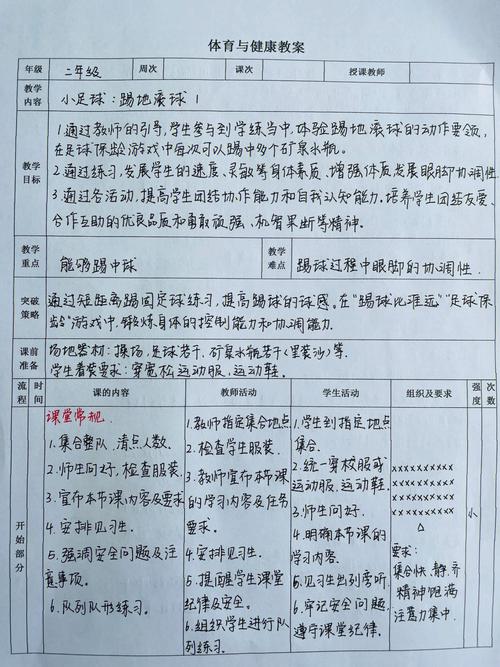 体育与健康教案
年级 二年级 周次 课次 授课教师
教学内容 小足球:踢地滚球1
教学目标
1.通过教师的引导,学生参与到学练当中,体验踢地滚球的动作要领,
在足球保龄游戏中每次可以踢中多个矿泉水瓶。
2.通过练习,发展学生的速度、灵敏等身体素质,增强体质发展眼脚协调性
3.通过各活动,提高学生团结协作能力和自我认知能力。培养学生团结友爱、
合作互助的优良品质和勇敢顽强、机智果断等精神。
教学重点 能够踢中球 教学难点 踢球过程中眼脚的协调性.
突破策略
通过短距离踢固定球练习,提高踢球的球感。在“踢球比准远”“足球保
龄”游戏中,锻炼身体的控制能力和协调能力.
课前准备
场地器材:操场,足球若干,矿泉水瓶若干(里装沙)等.
学生着装要求:穿宽松运动服,运动鞋.
流程 时间 课的内容 教师活动 学生活动 组织及要求 强度 次数
开始部分
课堂常规
1.集合整队,清点人数。
2.师生问好,检查服装.
3.宣布本节课内容及要求
4.安排见习生.
5.强调安全问题及注
意事项。
6.队列队形练习。
1.教师指定集合地点
2.检查学生服装.
3.教师宣布本节课
的学习内容及任务
要求.
4.安排见习生
5.提醒学生课堂
纪律及安全。
6.组织学生进行队
列练习.
1.学生到指定地点
集合.
2.统一穿校服或
运动服,运动鞋.
3.师生问好.
4.明确本节课的
学习内容.
5.见习生出列旁听.
6.牢记安全问题,
遵守课堂纪律.
xxxxxxxxxx
xxxxxxxxxx
xxxxxxxxxx
xxxxxxxxxx
△
要求:
集合快、静、齐
精神饱满
注意力集中
小